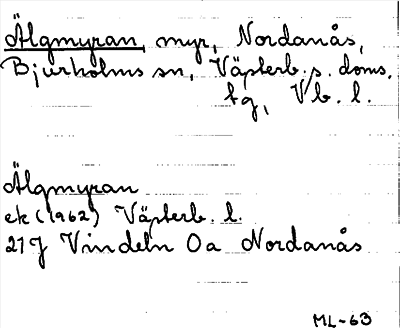 Älgmyran, myr, Nordanås,
Bjurholms sn, Västerb. s. doms.
tg, Vb. l.
Älgmyran
ek (1962) Västerb. l.
21J Vindeln 0a Nordanås
ML-63